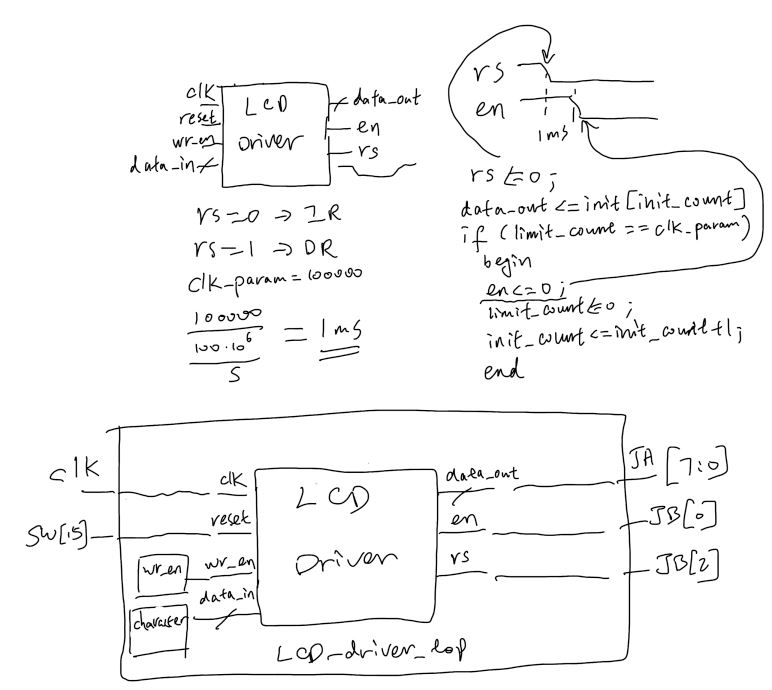 clk
reset
wr_en
data_in
LCD
Driver
data_out
en
rs
rs=0 → IR
rs=1 → DR
clk_param=100000
100000
100·10⁶
s
= 1ms
rs
en
1ms
rs <= 0;
data_out <= init[init_count]
if (limit_count == clk_param)
begin
en<=0;
limit_count <= 0;
init_count <= init_count+1;
end
clk
SW[15]
clk
reset
wr_en
wr_en
data_in
character
LCD
Driver
data_out
en
rs
JA [7:0]
JB[0]
JB[2]
LCD_driver_top